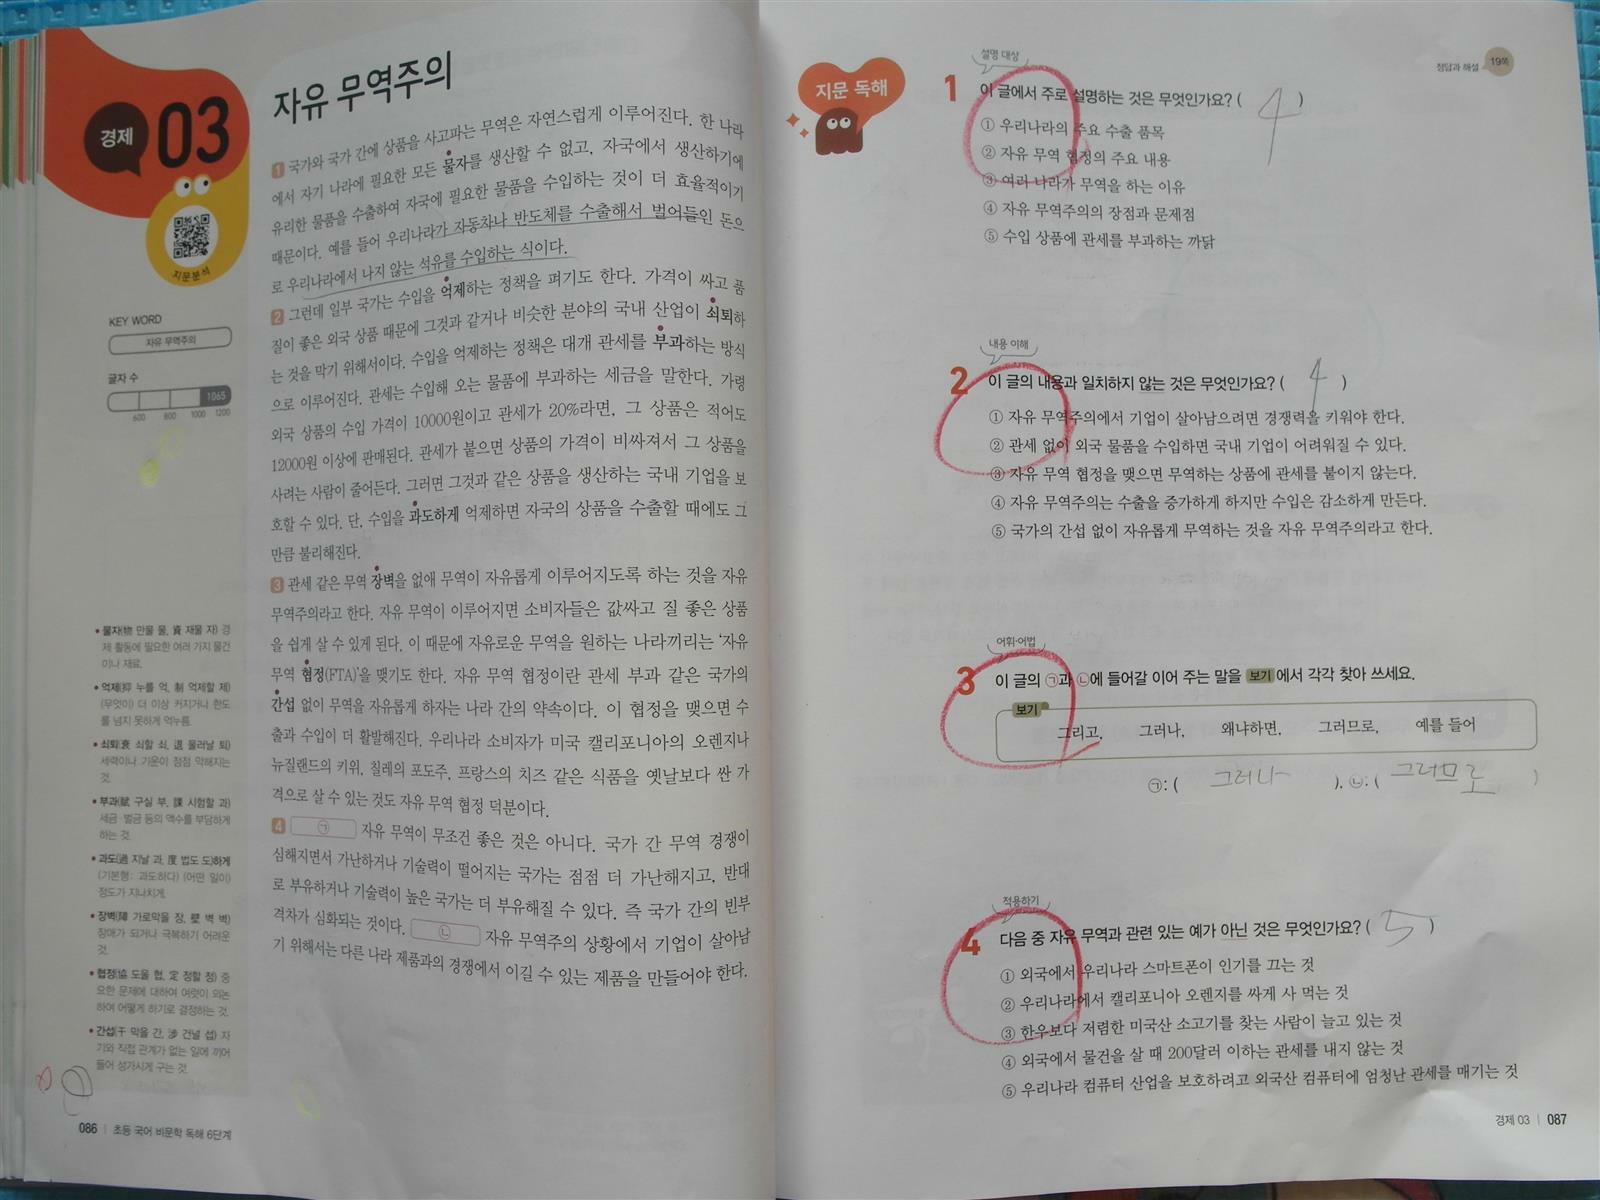 경제
03
지문분석
KEY WORD
자유 무역주의
글자 수
1065
600 800 1000 1200
• 물자(物 만물 물, 資 재물 자) 경
제 활동에 필요한 여러 가지 물건
이나 재료.
• 억제(抑 누를 억, 制 억제할 제)
(무엇이) 더 이상 커지거나 한도
를 넘지 못하게 억누름.
• 쇠퇴(衰 쇠할 쇠, 退 물러날 퇴)
세력이나 기운이 점점 약해지는
것.
• 부과(賦 구실 부, 課 시험할 과)
세금·벌금 등의 액수를 부담하게
하는 것.
• 과도(過 지날 과, 度 법도 도)하게
(기본형: 과도하다) (어떤 일이)
정도가 지나치게.
• 장벽(障 가로막을 장, 壁 벽 벽)
장애가 되거나 극복하기 어려운
것.
• 협정(協 도울 협, 定 정할 정) 중
요한 문제에 대하여 여럿이 의논
하여 어떻게 하기로 결정하는 것.
• 간섭(干 막을 간, 涉 건널 섭) 자
기와 직접 관계가 없는 일에 끼어
들어 성가시게 구는 것.
086 | 초등 국어 비문학 독해 6단계
자유 무역주의
1 국가와 국가 간에 상품을 사고파는 무역은 자연스럽게 이루어진다. 한 나라
에서 자기 나라에 필요한 모든 물자를 생산할 수 없고, 자국에서 생산하기에
유리한 물품을 수출하여 자국에 필요한 물품을 수입하는 것이 더 효율적이기
때문이다. 예를 들어 우리나라가 자동차나 반도체를 수출해서 벌어들인 돈으
로 우리나라에서 나지 않는 석유를 수입하는 식이다.
2 그런데 일부 국가는 수입을 억제하는 정책을 펴기도 한다. 가격이 싸고 품
질이 좋은 외국 상품 때문에 그것과 같거나 비슷한 분야의 국내 산업이 쇠퇴하
는 것을 막기 위해서이다. 수입을 억제하는 정책은 대개 관세를 부과하는 방식
으로 이루어진다. 관세는 수입해 오는 물품에 부과하는 세금을 말한다. 가령
외국 상품의 수입 가격이 10000원이고 관세가 20%라면, 그 상품은 적어도
12000원 이상에 판매된다. 관세가 붙으면 상품의 가격이 비싸져서 그 상품을
사려는 사람이 줄어든다. 그러면 그것과 같은 상품을 생산하는 국내 기업을 보
호할 수 있다. 단, 수입을 과도하게 억제하면 자국의 상품을 수출할 때에도 그
만큼 불리해진다.
3 관세 같은 무역 장벽을 없애 무역이 자유롭게 이루어지도록 하는 것을 자유
무역주의라고 한다. 자유 무역이 이루어지면 소비자들은 값싸고 질 좋은 상품
을 쉽게 살 수 있게 된다. 이 때문에 자유로운 무역을 원하는 나라끼리는 '자유
무역 협정(FTA)'을 맺기도 한다. 자유 무역 협정이란 관세 부과 같은 국가의
간섭 없이 무역을 자유롭게 하자는 나라 간의 약속이다. 이 협정을 맺으면 수
출과 수입이 더 활발해진다. 우리나라 소비자가 미국 캘리포니아의 오렌지나
뉴질랜드의 키위, 칠레의 포도주, 프랑스의 치즈 같은 식품을 옛날보다 싼 가
격으로 살 수 있는 것도 자유 무역 협정 덕분이다.
4 ㉠ 자유 무역이 무조건 좋은 것은 아니다. 국가 간 무역 경쟁이
심해지면서 가난하거나 기술력이 떨어지는 국가는 점점 더 가난해지고, 반대
로 부유하거나 기술력이 높은 국가는 더 부유해질 수 있다. 즉 국가 간의 빈부
격차가 심화되는 것이다. ㉡ 자유 무역주의 상황에서 기업이 살아남
기 위해서는 다른 나라 제품과의 경쟁에서 이길 수 있는 제품을 만들어야 한다.
지문 독해
정답과 해설 19쪽
설명 대상
1 이 글에서 주로 설명하는 것은 무엇인가요? ( 4 )
① 우리나라의 주요 수출 품목
② 자유 무역 협정의 주요 내용
③ 여러 나라가 무역을 하는 이유
④ 자유 무역주의의 장점과 문제점
⑤ 수입 상품에 관세를 부과하는 까닭
내용 이해
2 이 글의 내용과 일치하지 않는 것은 무엇인가요? ( 4 )
① 자유 무역주의에서 기업이 살아남으려면 경쟁력을 키워야 한다.
② 관세 없이 외국 물품을 수입하면 국내 기업이 어려워질 수 있다.
③ 자유 무역 협정을 맺으면 무역하는 상품에 관세를 붙이지 않는다.
④ 자유 무역주의는 수출을 증가하게 하지만 수입은 감소하게 만든다.
⑤ 국가의 간섭 없이 자유롭게 무역하는 것을 자유 무역주의라고 한다.
어휘·어법
3 이 글의 ㉠과 ㉡에 들어갈 이어 주는 말을 보기 에서 각각 찾아 쓰세요.
보기
그리고, 그러나, 왜냐하면, 그러므로, 예를 들어
㉠: ( 그러나 ), ㉡: ( 그러므로 )
적용하기
4 다음 중 자유 무역과 관련 있는 예가 아닌 것은 무엇인가요? ( 5 )
① 외국에서 우리나라 스마트폰이 인기를 끄는 것
② 우리나라에서 캘리포니아 오렌지를 싸게 사 먹는 것
③ 한우보다 저렴한 미국산 소고기를 찾는 사람이 늘고 있는 것
④ 외국에서 물건을 살 때 200달러 이하는 관세를 내지 않는 것
⑤ 우리나라 컴퓨터 산업을 보호하려고 외국산 컴퓨터에 엄청난 관세를 매기는 것
경제 03 | 087